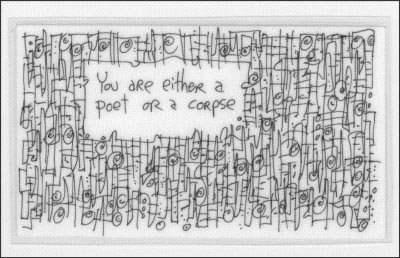 You are either a
poet or a corpse